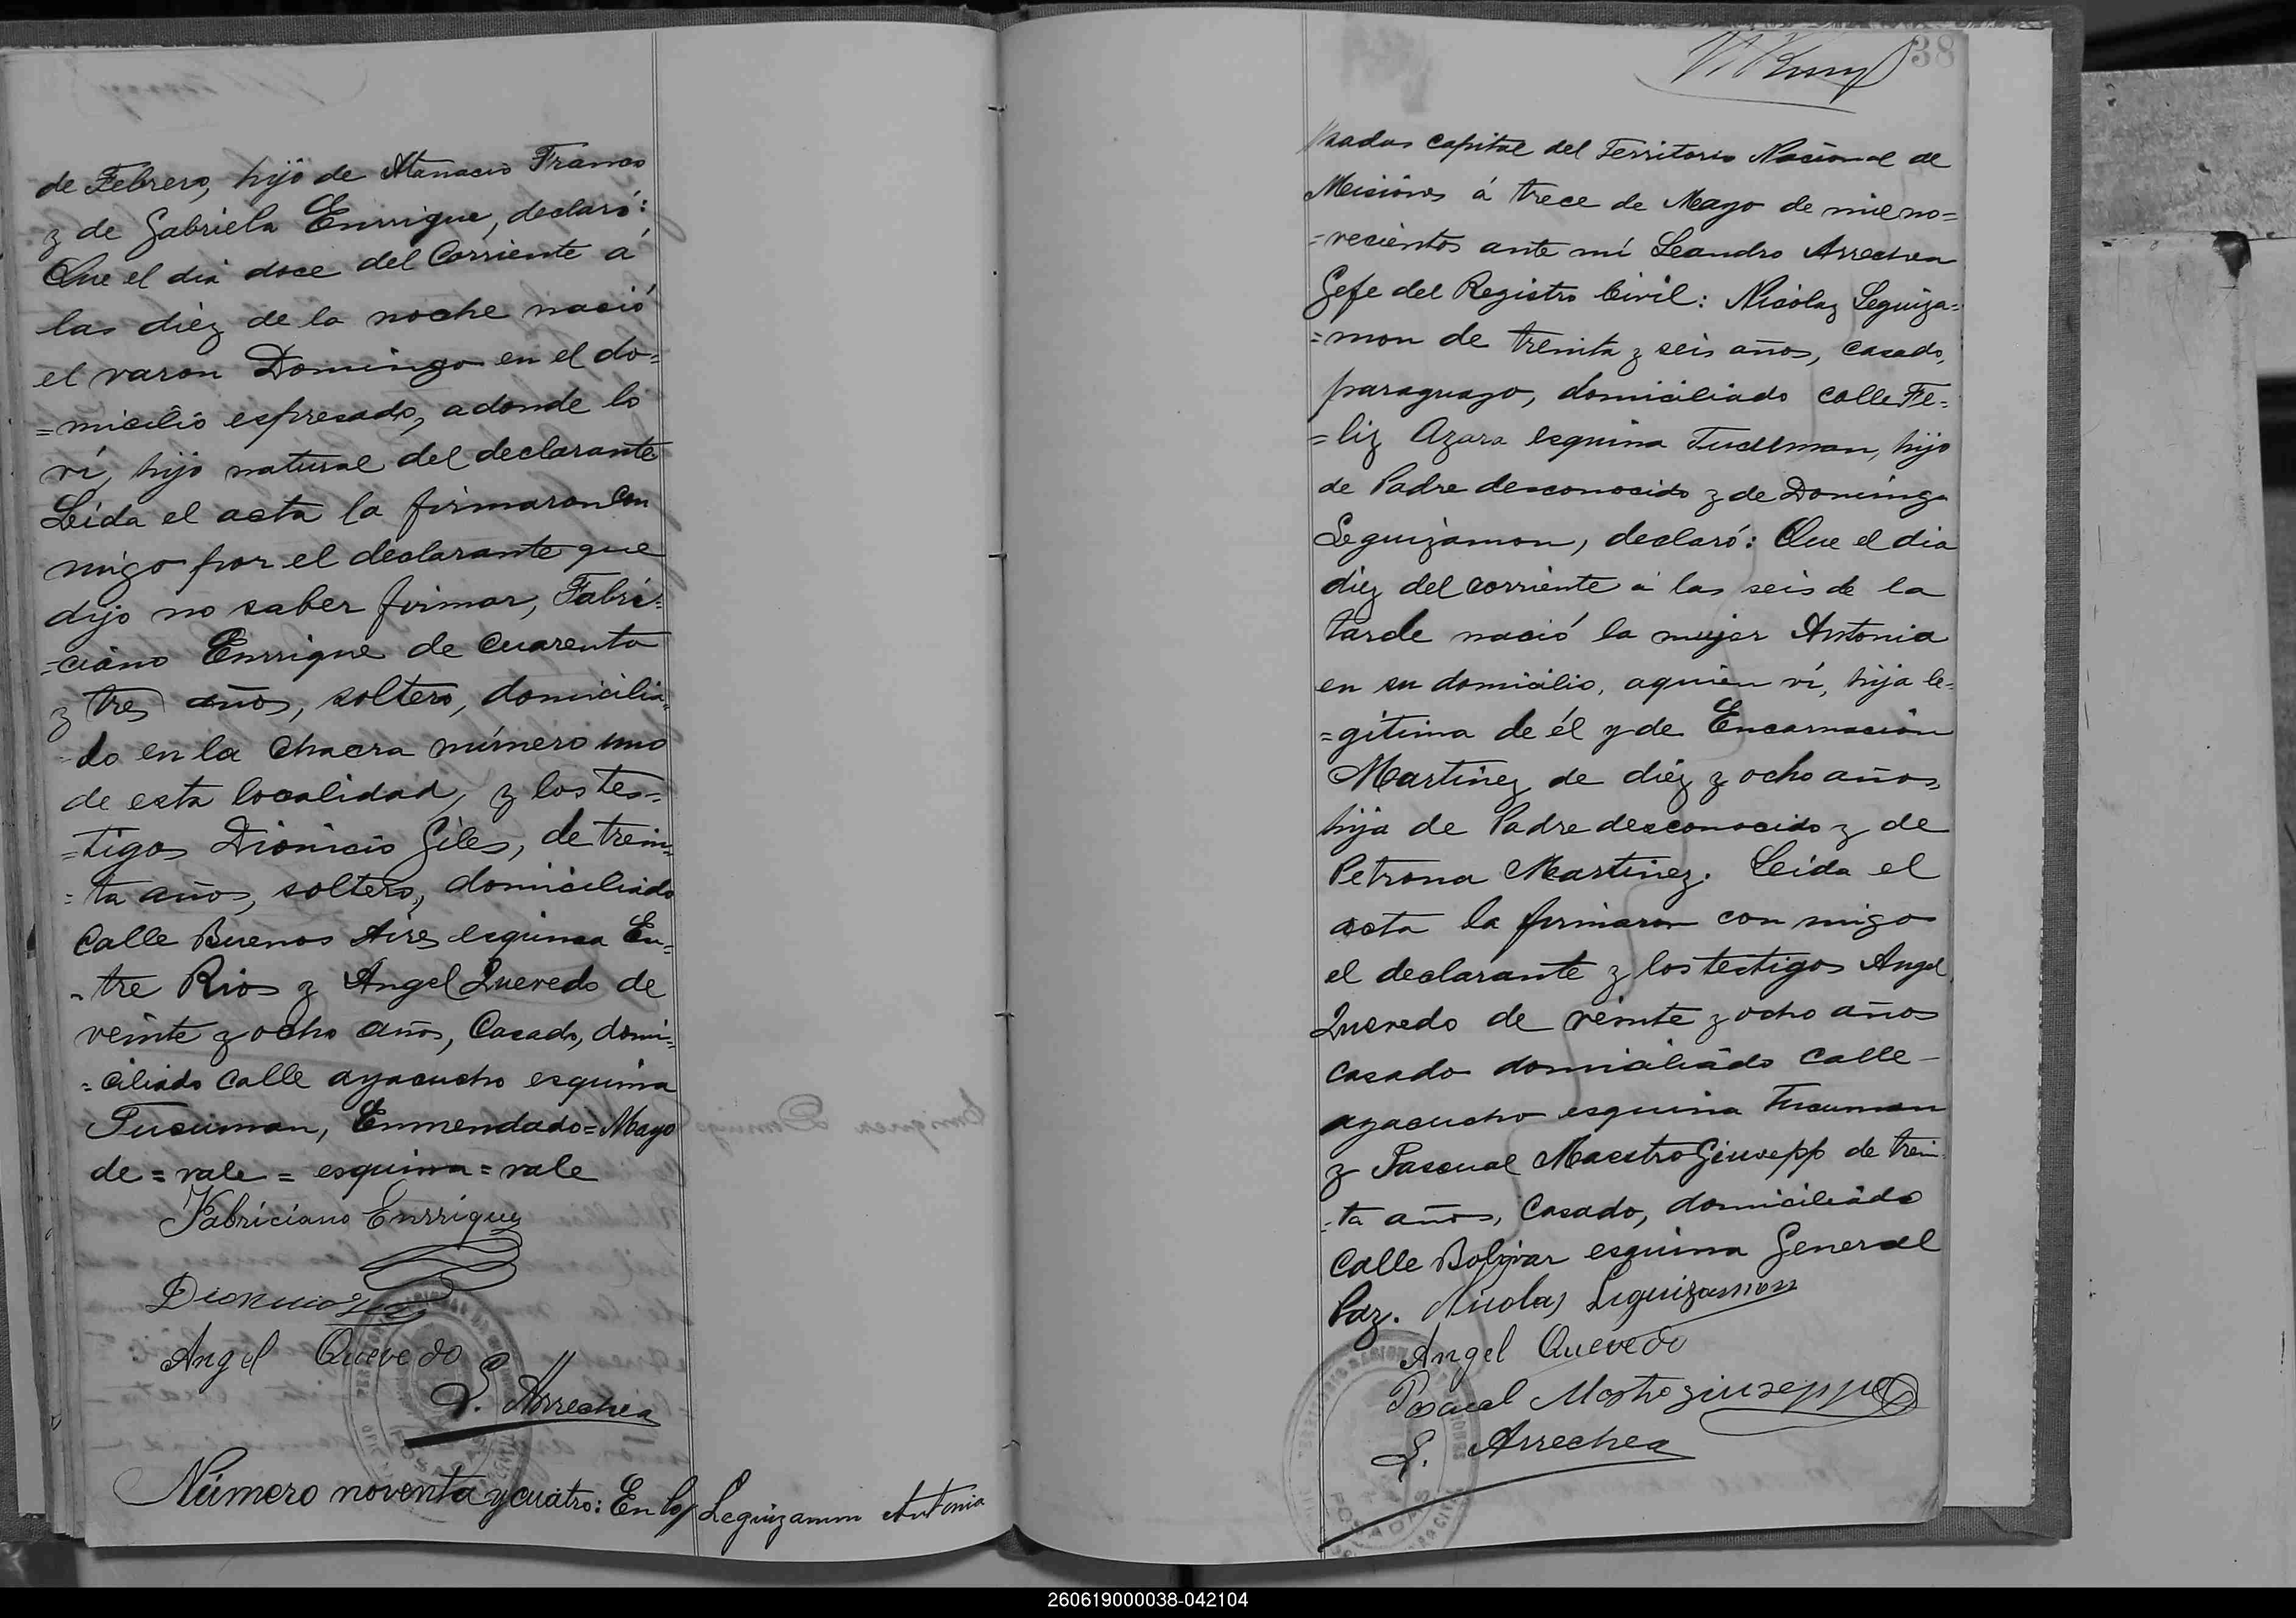 de Febrero, hijo de Atanacio Franco
y de Gabriela Enrrique, declaró:
Que el dia doce del Corriente á
las diéz de la noche nació
el varon Domingo en el do=
=micilio espresado, adonde lo
ví, hijo natural del declarante
Leida el acta la firmaron con
migo por el declarante que
dijo no saber firmar, Fabri=
=ciano Enrrique de cuarenta
y tres años, soltero, domicilia=
do en la chacra número uno
de esta localidad, y los tes=
=tigos Dionicio Giles, de trein=
=ta años, soltero, domiciliado
Calle Buenos Aires esquina En=
=tre Rios y Angel Quevedo de
veinte y ocho años, Casado, domi=
=ciliado calle ayacucho esquina
Tucuman, Enmendado=Mayo
de=vale=esquina=vale
Fabriciano Enrrique
Angel Quevedo
L. Arrechea
Número noventa y cuatro: En Po
Leguizamon Antonia
38
sadas capital del Territorio Nacional de
Misiónes á trece de Mayo de mil no=
=vecientos ante mí Leandro Arrechea
Gefe del Registro Civil: Nicolaz Leguiza=
=mon de treinta y seis años, casado,
paraguayo, domiciliado calle Fe=
=liz Azara esquina Tucuman, hijo
de Padre desconocido y de Dominga
Leguizamon, declaró: Que el dia
diez del corriente á las seis de la
tarde nació la mujer Antonia
en su domicilio, aquien ví, hija le=
=gítima de él y de Encarnación
Martinez de diéz y ocho años,
hija de Padre desconocido y de
Petrona Martinez. Leida el
acta la firmaron con migo
el declarante y los testigos Angel
Quevedo de veinte y ocho años
casado domiciliado calle
ayacucho esquina Tucuman
y Pascual Maestro Giusepp de trein
=ta años, Casado, domiciliado
Calle Bolivar esquina General
Paz. Nicolas Leguizamon
Angel Quevedo
Pascual Mastrogiuseppe
L. Arrechea
POSADAS
260619000038-042104